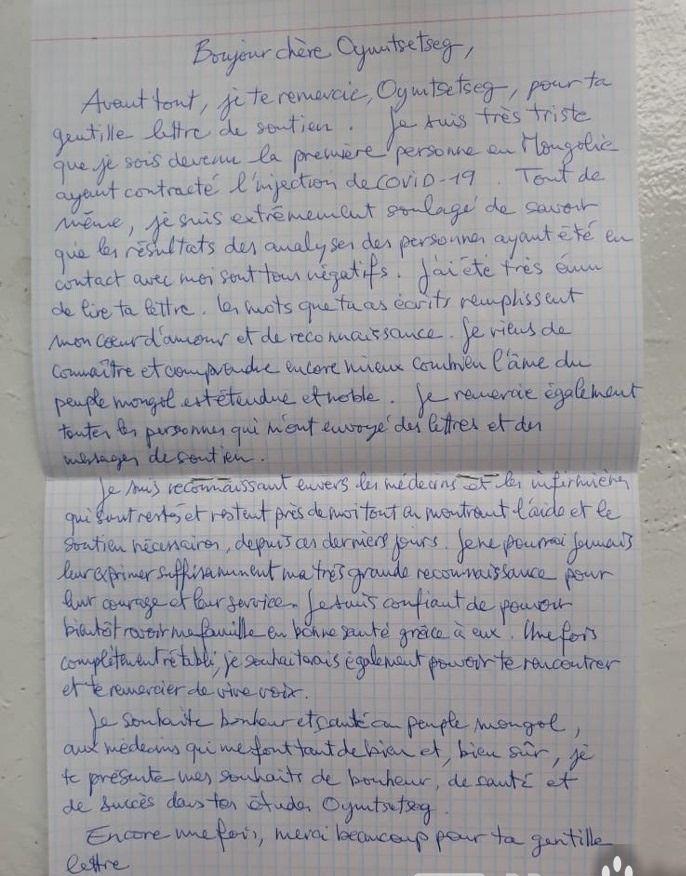 Boujour chère Oyuntsetseg,
Avant tout, je te remercie, Oyuntsetseg, pour ta
gentille lettre de soutien. Je suis très triste
que je sois devenu la première personne en Mongolie
ayant contracté l'injection de COVID-19. Tout de
même, je suis extrêmement soulagé de savoir
que les résultats des analyses des personnes ayant été en
contact avec moi sont tous négatifs. J'ai été très ému
de lire ta lettre. Les mots que tu as écrits remplissent
mon cœur d'amour et de reconnaissance. Je viens de
connaître et comprendre encore mieux combien l'âme du
peuple mongol est étendue et noble. Je remercie également
toutes les personnes qui m'ont envoyé des lettres et des
messages de soutien.
Je suis reconnaissant envers les médecins et les infirmières
qui sont restés et restent près de moi tout en montrant l'aide et le
soutien nécessaires, depuis ces derniers jours. Je ne pourrai jamais
leur exprimer suffisamment ma très grande reconnaissance pour
leur courage et leur service. Je suis confiant de pouvoir
bientôt revoir ma famille en bonne santé grâce à eux. Une fois
complètement rétabli, je souhaiterais également pouvoir te rencontrer
et te remercier de vive voix.
Je souhaite bonheur et santé au peuple mongol,
aux médecins qui me font tant de bien et, bien sûr, je
te présente mes souhaits de bonheur, de santé et
de succès dans tes études Oyuntsetseg.
Encore une fois, merci beaucoup pour ta gentille
lettre